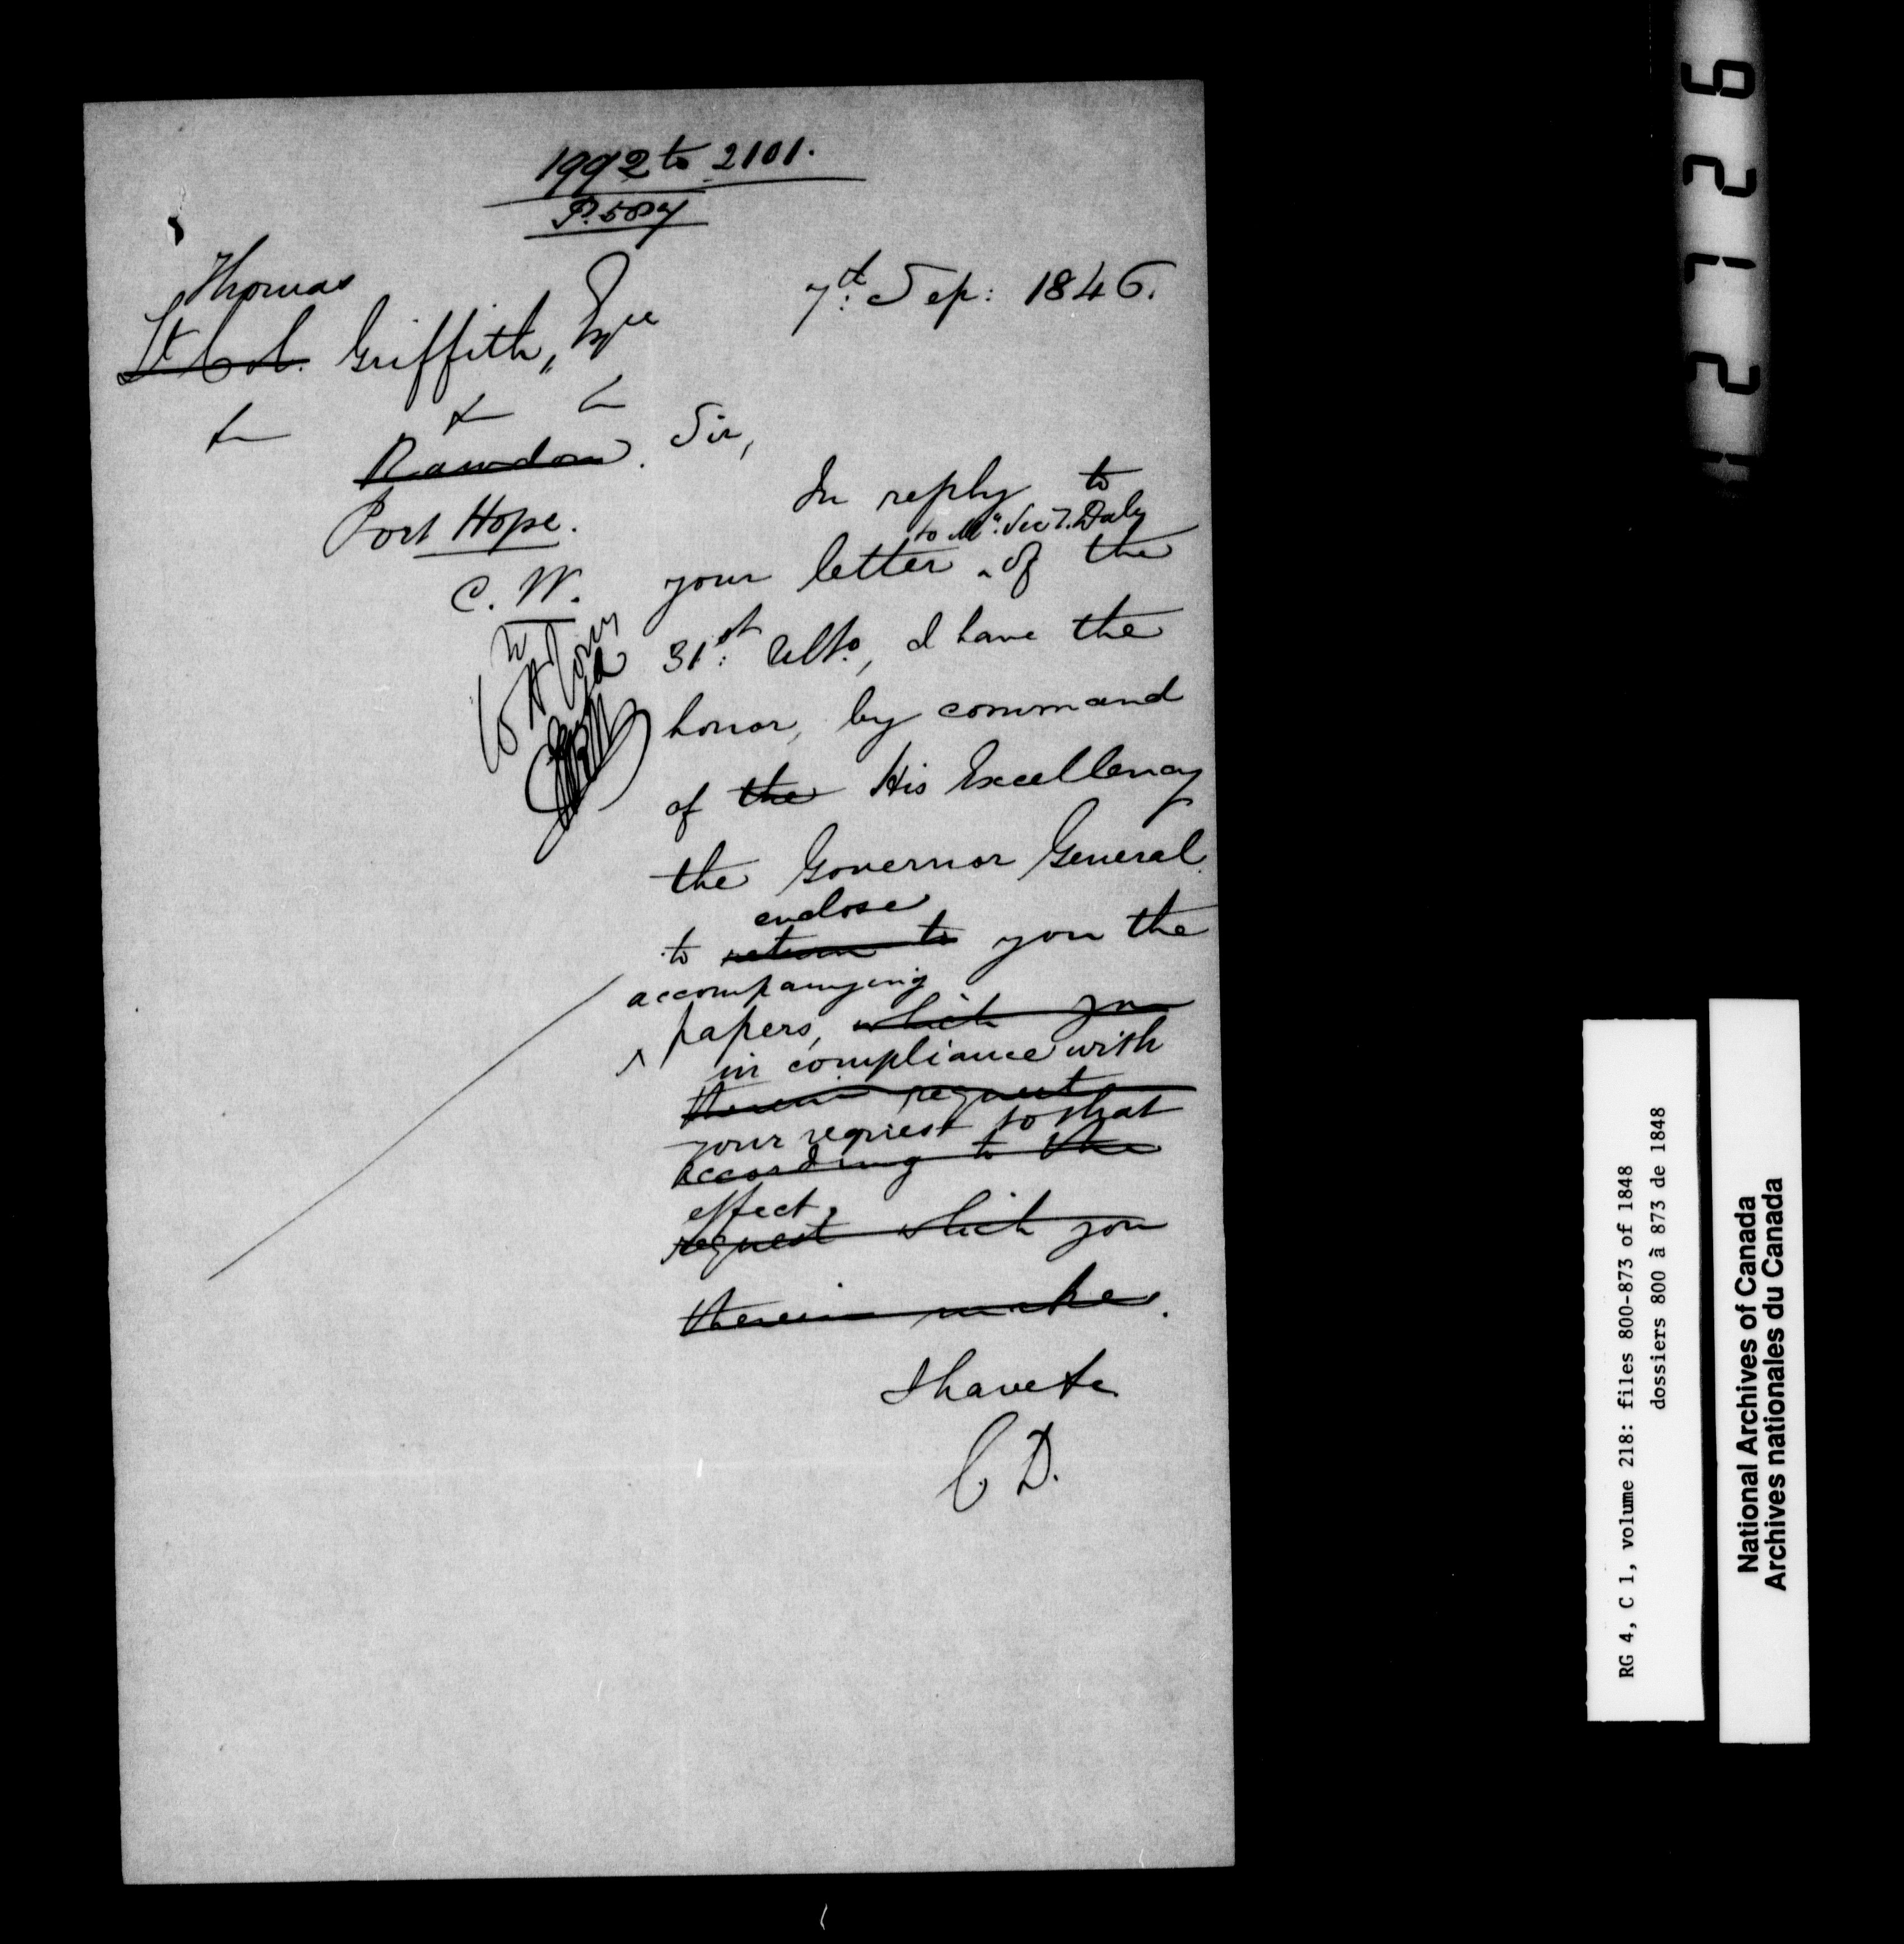 1992 to 2101.
P. 507
7th: Sep: 1846.
Thomas
Lt Col. Griffith, Esqre
&c &c &c
Rawdon.
Port Hope.
C. W.
Sir,
In reply to
to Mr. Secy. Daly
your letter of the
31st: Ulto., I have the
honor, by command
of the His Excellency
the Governor General
enclose
to return to you the
accompanying
papers, which you
in compliance with
therein request
your request to that
according to the
effect.
request which you
therein make.
I have &c
C. D.
12726
RG 4, C 1, volume 218: files 800-873 of 1848
dossiers 800 à 873 de 1848
National Archives of Canada
Archives nationales du Canada